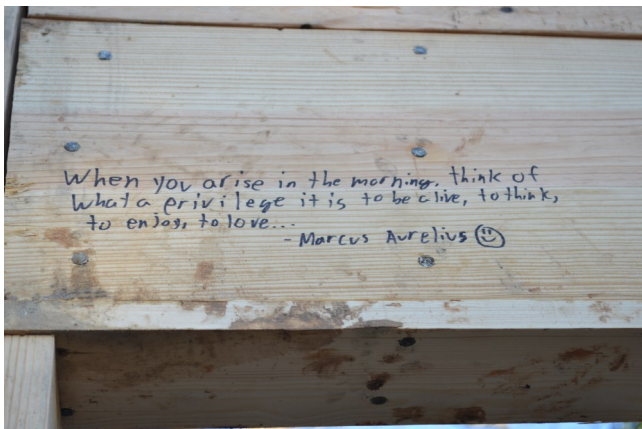 When you arise in the morning, think of
what a privilege it is to be alive, to think,
to enjoy, to love...
- Marcus Aurelius